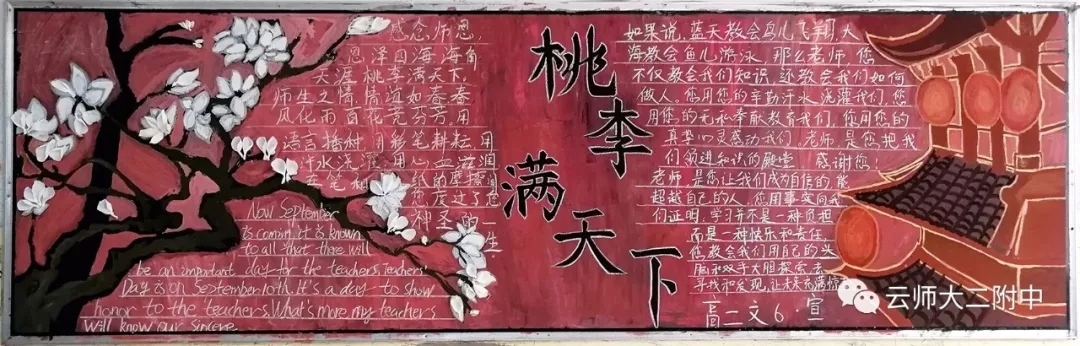 感念师恩,
恩泽四海,海角
天涯,桃李满天下,
师生之情,情谊如春,春
风化雨百花竞芬芳,用
语言播种,用彩笔耕耘,用
汗水浇灌,用心血滋润
在笔和纸的摩擦
您度过了您
神圣的一
生
Now September
is coming, it is known
to all that there will
be an important day for the teachers, Teachers'
Day is on September 10th. It's a day to show
honor to the teachers. What's more my teachers
Will know our sincere
桃李满天下
如果说,蓝天教会鸟儿飞翔,大
海教会鱼儿游泳,那么老师,您
不仅教会我们知识,还教会我们如何
做人。您用您的辛勤汗水浇灌我们,您
用您的无私奉献教育我们,您用您的
真挚心灵感动我们,老师,是您把我
们领进知识的殿堂,感谢您!
老师,是您让我们成为自信的,能
超越自己的人,您用事实向我
们证明,学习并不是一种负担,
而是一种快乐和责任,
您教会我们用自己的头
脑和双手大胆探索,去
寻找和发现,让未来充满惊
高二文6·宣
云师大二附中